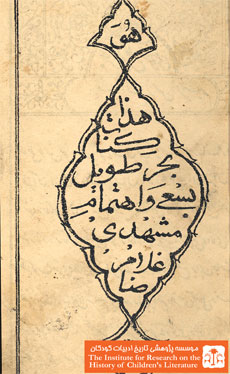 هُوَ
هذا
کتاب
بحر طویل
بسعی و اهتمام
مشهدی
غلام
رضا
موسسه پژوهشی تاریخ ادبیات کودکان
The Institute for Research on the
History of Children's Literature